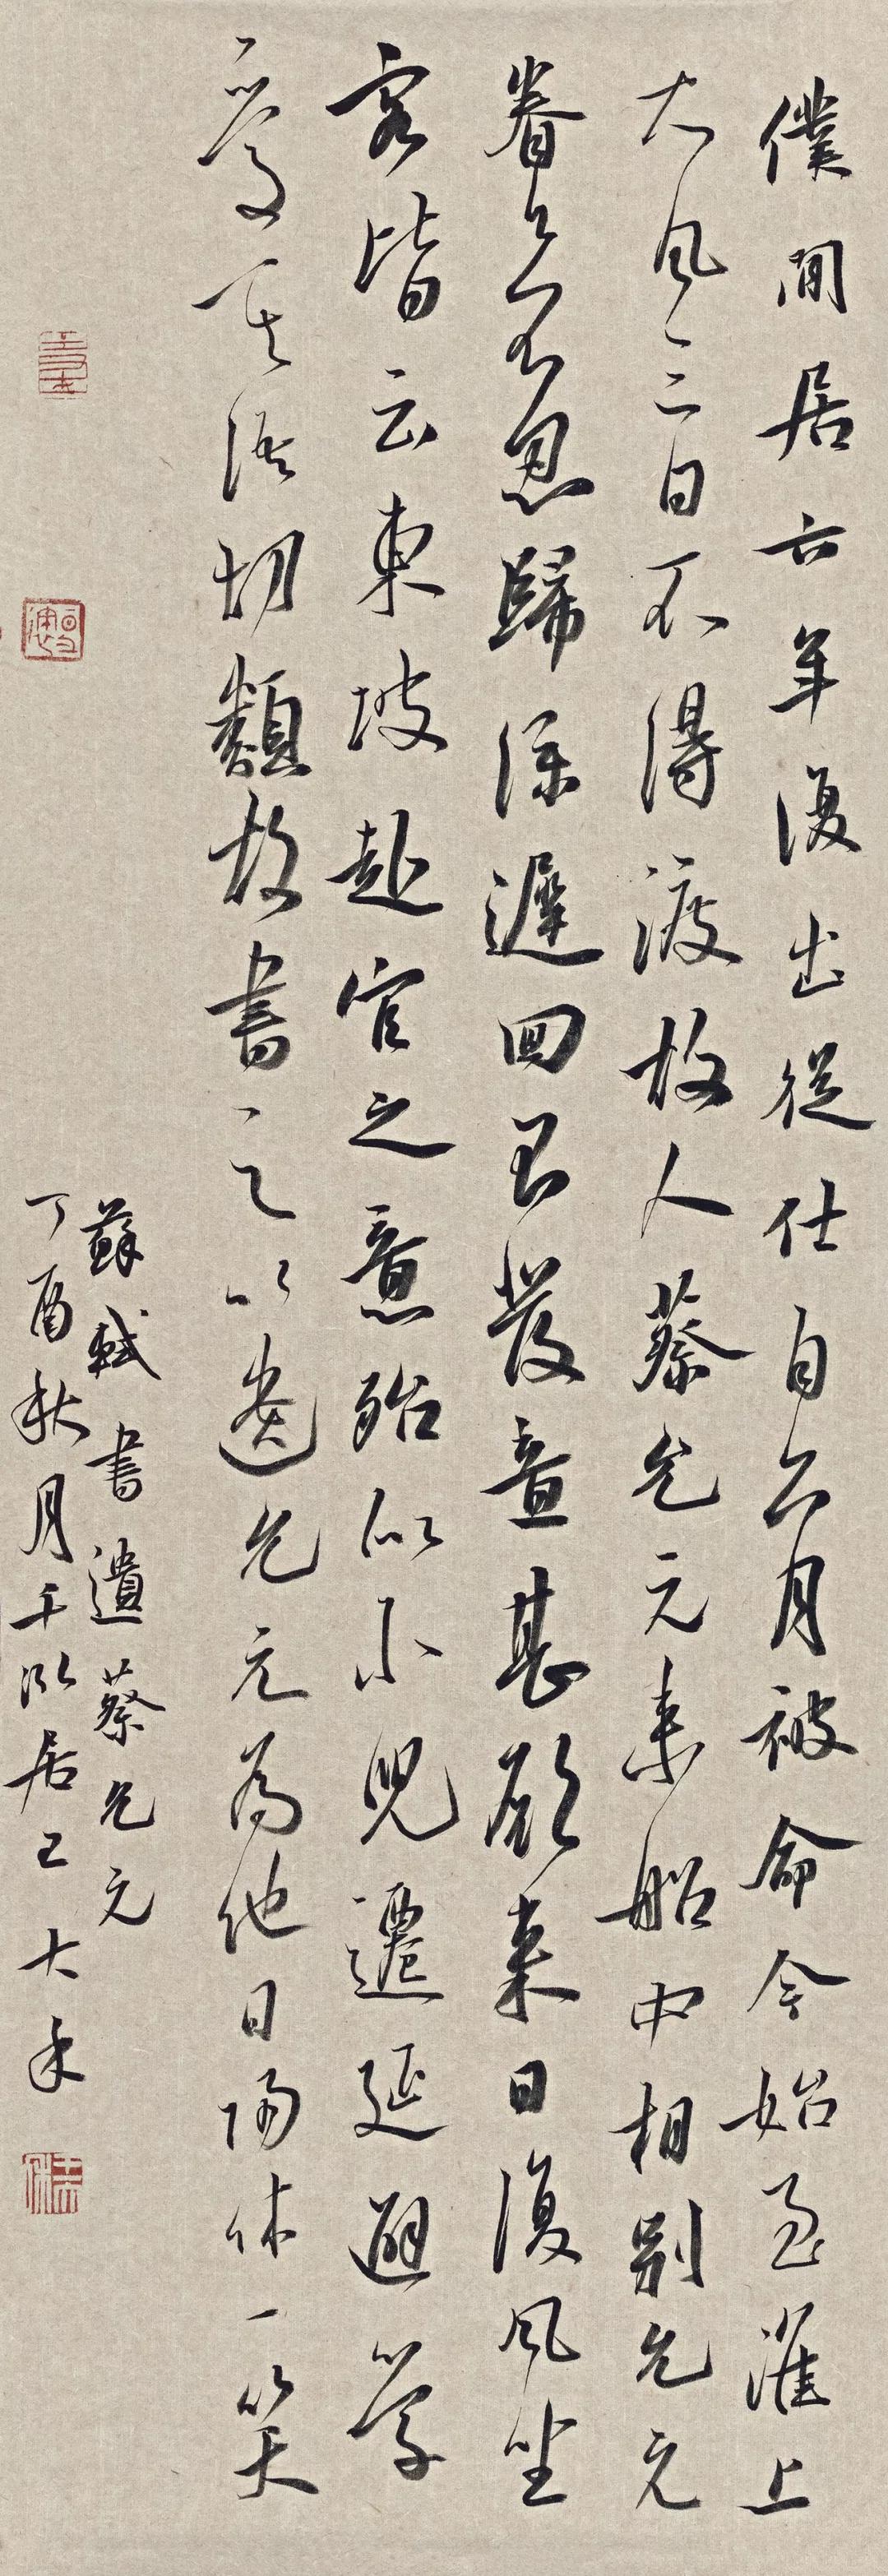 僕閒居六年復出從仕自六月被命今始至淮上
大風三日不得渡故人蔡允元來船中相別允元
眷々不忍歸僕遲回不發意甚願來日復風坐
客皆云東坡赴官之意殆似小兒遷延避學
愛其語切類故書之以遺允元為他日歸休一笑
蘇軾書遺蔡允元
丁酉秋月千泓居王大禾